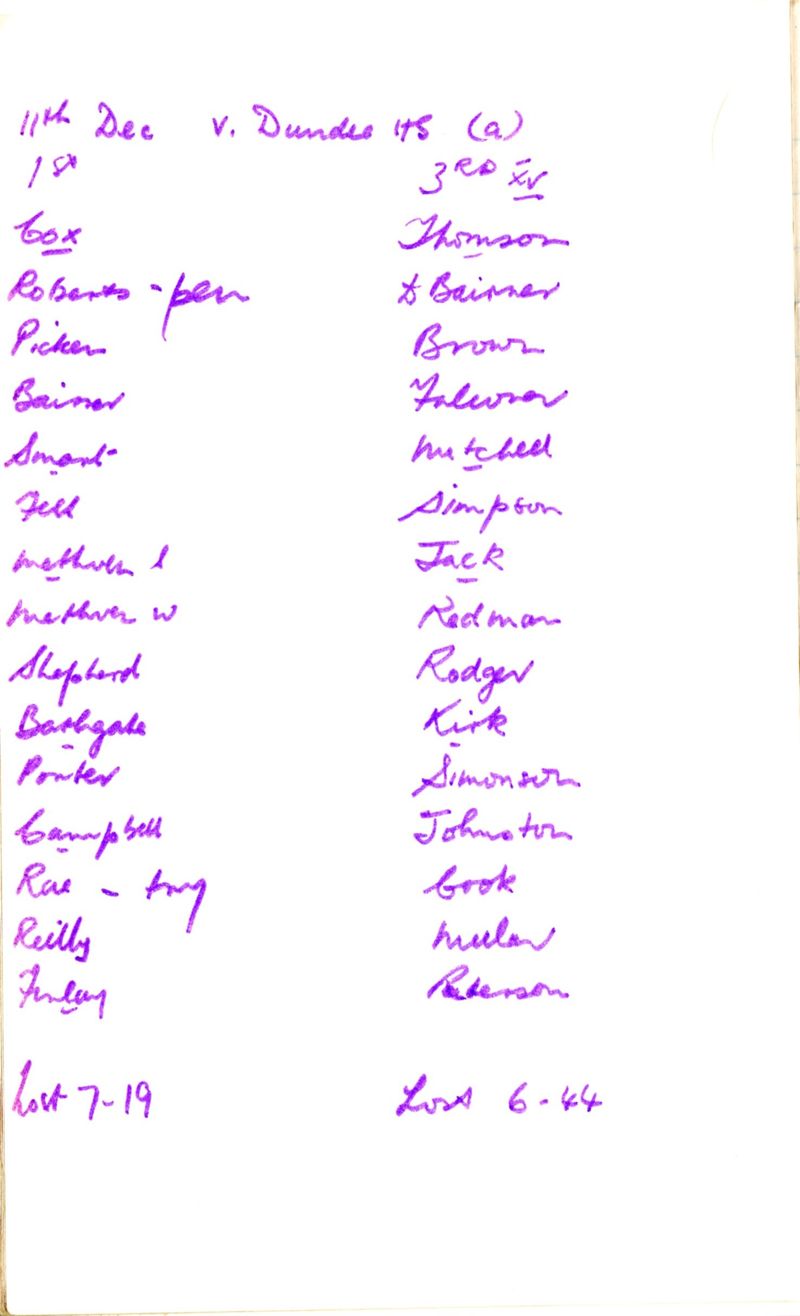 11th Dec v. Dundee HS (a)
1st 3RD XV
Cox Thomson
Roberts - pen D Bairner
Picken Brown
Bairner Falconer
Smart Mitchell
Fell Simpson
Methven I Jack
Methven W Redman
Shepherd Rodger
Bathgate Kirk
Porter Simonson
Campbell Johnston
Rae - try Cook
Reilly
Finlay Paterson
Lost 7-19 Lost 6-44